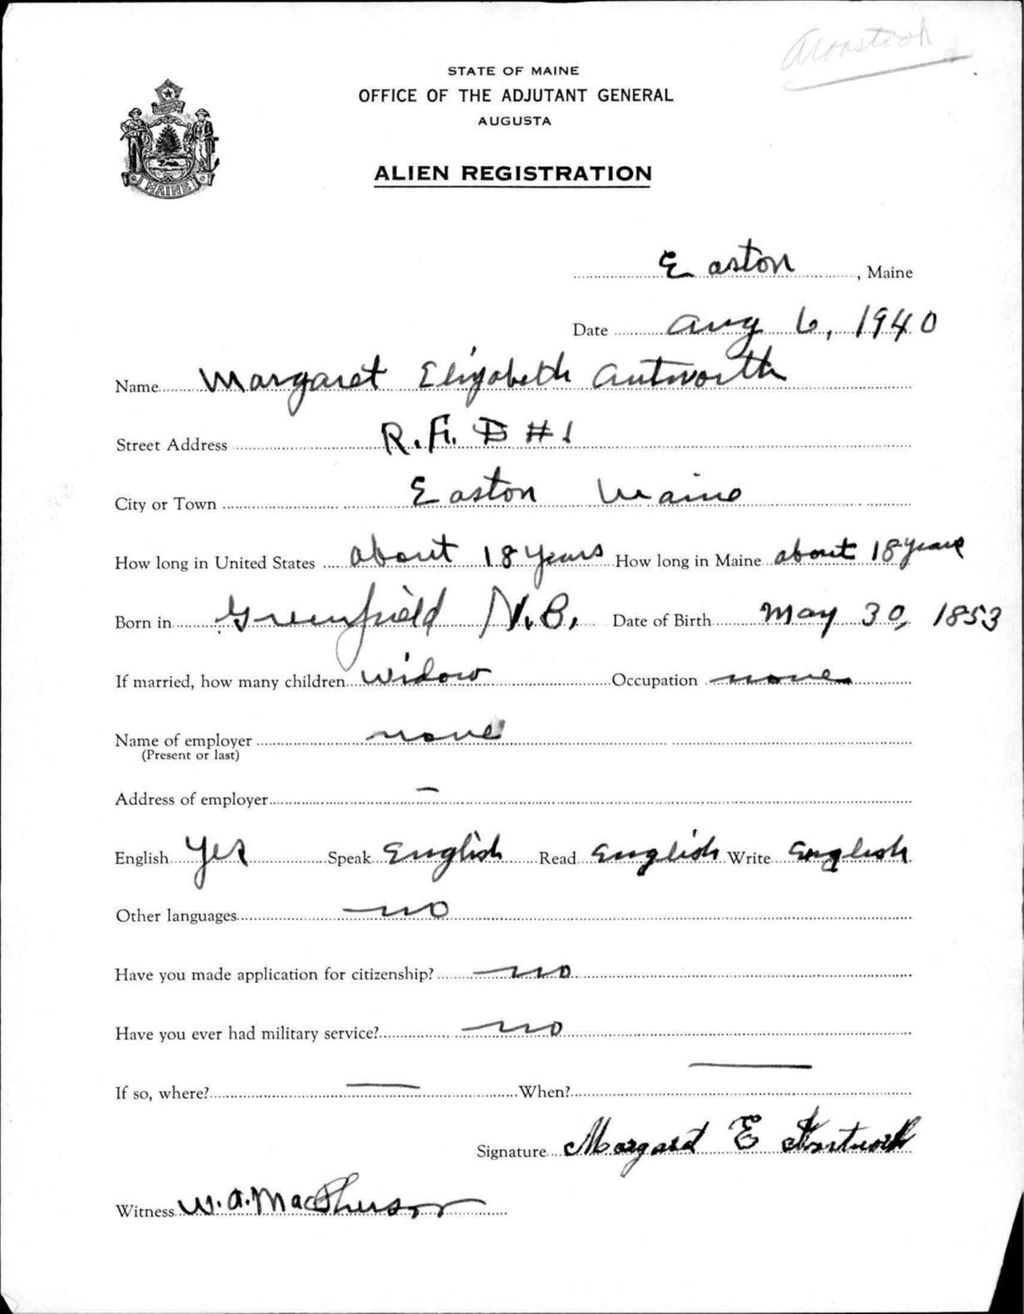 Aroostook
STATE OF MAINE
OFFICE OF THE ADJUTANT GENERAL
AUGUSTA
ALIEN REGISTRATION
MAINE
Easton, Maine
Date Aug 6, 1940
Name Margaret Elizabeth Antworth
Street Address R. F. D #1
City or Town Easton Maine
How long in United States about 18 years How long in Maine about 18 years
Born in Greenfield N.B. Date of Birth May 30, 1853
If married, how many children Widow Occupation none
Name of employer none
(Present or last)
Address of employer –
English Yes Speak English Read English Write English
Other languages no
Have you made application for citizenship? no
Have you ever had military service? no
If so, where? — When? —
Signature Margaret E Antworth
Witness W. A. MacPherson